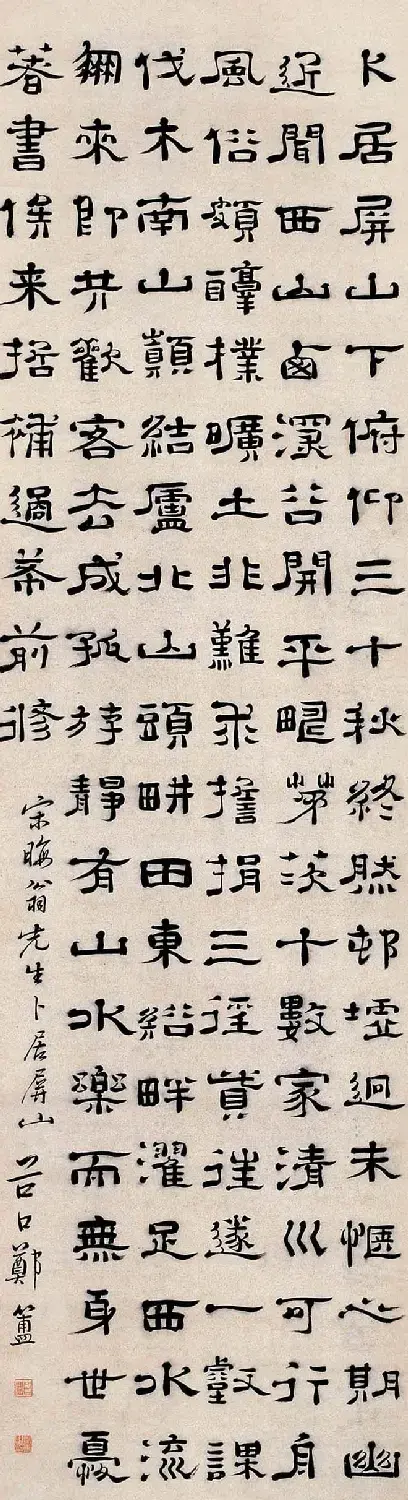 卜居屏山下俯仰三十秋終然邨墟迥未愜心期幽
近聞西山西深谷開平疇茅茨十數家清川可行舟
風俗頗醇樸曠土非難求擔捐三徑貲往遂一壑謀
伐木南山巔結廬北山頭畊田東谿畔濯足西水流
朋來即共歡客去成孤游靜有山水樂而無身世憂
著書俟来哲補過希前修
宋晦翁先生卜居屏山 谷口鄭簠